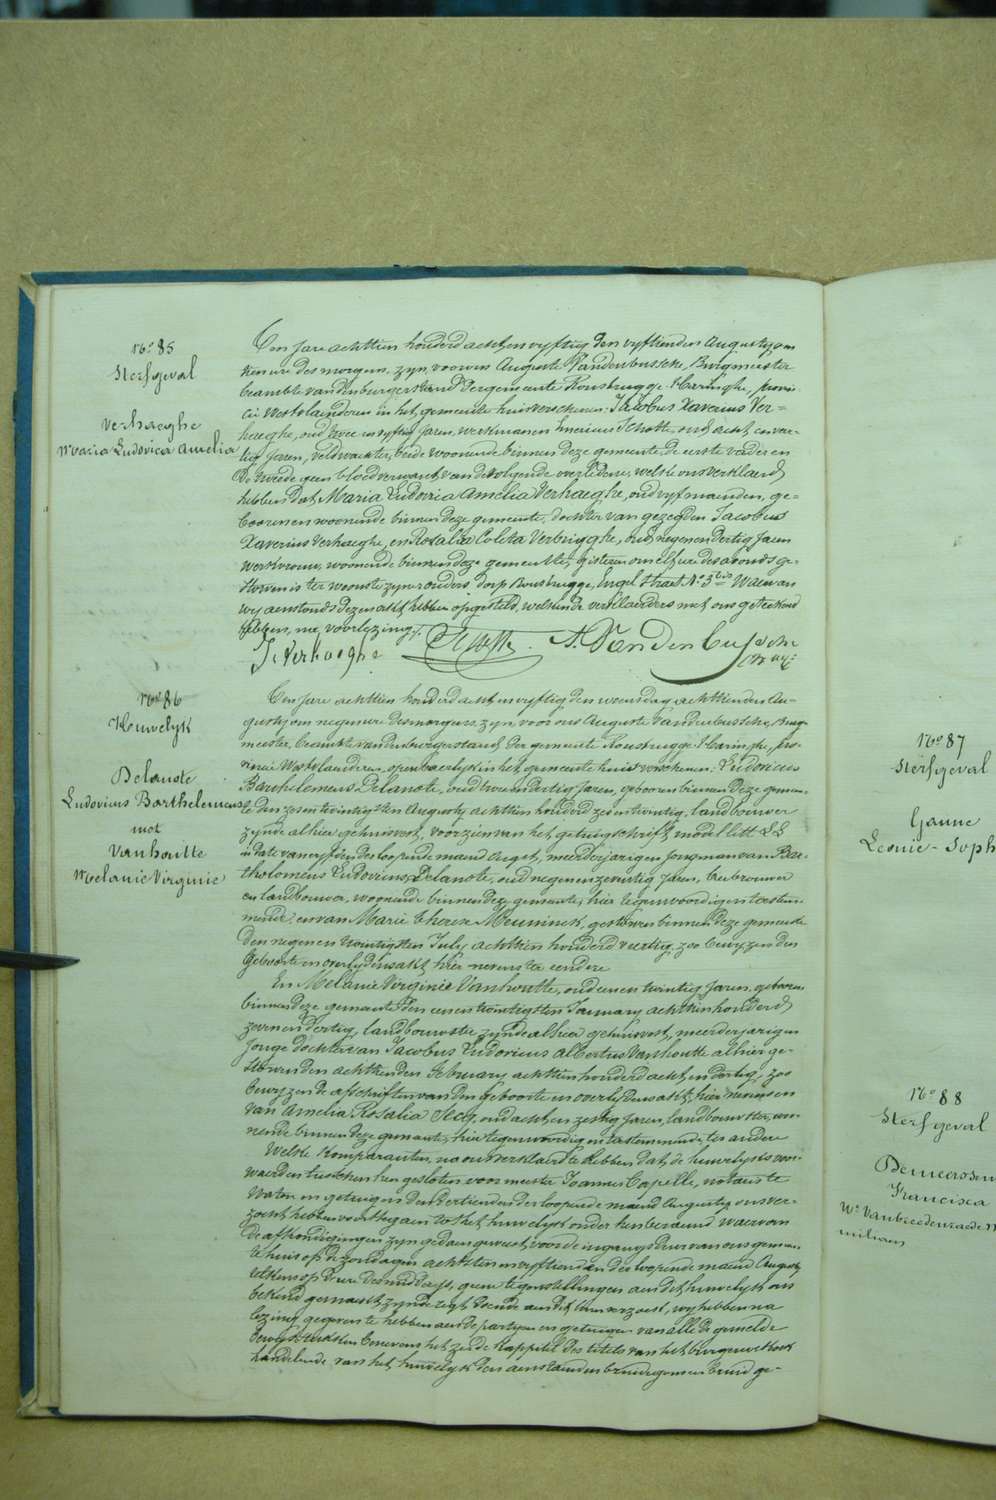 No. 85
Sterfgeval
Verhaeghe
Maria Ludovica Amelia
Ten jare achttien honderd acht en vyftig den vyftienden Augusty om
tien ure des morgens, zyn voor ons Auguste Vandenbussche, Burgmeester
beambte van den burgerstand der gemeente Rousbrugge-Haringhe, provin-
cie Westvlaenderen in het gemeente huis verschenen: Jacobus Xaverius Ver-
haeghe, oud twee en vyftig jaren, werkman en Emerius Schotte, oud acht en veer-
tig jaren, veldwachter, beide woonende binnen deze gemeente, de eerste vader en
de tweede geen bloedverwant van de volgende overledene, welke ons verklaerd
hebben dat Maria Ludovica Amelia Verhaeghe, oud vyf maenden, ge-
booren en woonende binnen deze gemeente, dochter van gezegden Jacobus
Xaverius Verhaeghe, en Rosalia Coleta Verbrugghe, oud negen en dertig jaren
werkvrouw, woonende binnen deze gemeente, gisteren om elf ure des avonds ge-
storven is ter woonste zyner ouders, dorp Rousbrugge, Engel straet No. 3 bis Waervan
wy aenstonds dezen akt hebben opgesteld, welke de verklaerders met ons geteekend
hebben, na voorlezing.
J. Verhaeghe Schotte A. Vandenbussche
No. 86
Huwelyk
Delanote
Ludovicus Barthelemeus
met
Vanhoutte
Melanie Virginie
Ten jare achttien honderd acht en vyftig den woensdag achttienden Au-
gusty om negen ure des morgens, zyn voor ons Auguste Vandenbussche, Burg-
meester, beambte van den burgerstand der gemeente Rousbrugge-Haringhe, pro-
vincie Westvlaenderen, openbaerlyk in het gemeente huis verschenen: Ludovicus
Barthelemeus Delanote, oud een en dertig jaren, gebooren binnen deze gemeen-
te den zeven en twintigsten Augusty achttien honderd zeven en twintig, landbouwer
zynde alhier gehuisvest, voorzien van het getuigschrift, model litt. LL
in date van den loopende maend Augst, meerderjarigen jongman van Bar-
tholomeus Ludovicus Delanote, oud negen en zeventig jaren, brouwer
en landbouwer, woonende binnen deze gemeente, hier tegenwoordig en toestem-
mende en van Marie Therese Meuninck, gestorven binnen deze gemeente
den negen en twintigsten July achttien honderd veertig, zoo bewyzen den
geboorte en overlydensakt hier nevens ter eendere
En Melanie Virginie Vanhoutte, oud een en twintig jaren, gebooren
binnen deze gemeente den een en twintigsten January achttien honderd
zeven en dertig, landbouwster zynde alhier gehuisvest, meerderjarigen
jonge dochter van Jacobus Ludovicus Albertus Vanhoutte alhier ge-
storven den achttienden February achttien honderd acht en dertig, zoo
bewyzen de afschriften van den geboorte en overlydensakt, hier nevens en
van Amelia Rosalia Secq, oud acht en zestig jaren, landbouwster, woo-
nende binnen deze gemeente, hier tegenwoordig en toestemmende ter andere
Welke komparanten, na ons verklaerd te hebben dat de huwelyksvoor-
waerden tusschen hen gesloten voor meester Joannes Capelle, notaris te
Watou en getuigen den dertienden der loopende maend Augusty ons ver-
zocht hebben voorttegaen tot het huwelyk onder hun beraemd waervan
de afkondigingen zyn gedaen geweest, voor de ingangsdeur van ons gemeen-
te huis op de zondagen achtsten en vyftienden des loopende maend Augusty
telkens op d'ure des middags, geene tegenstellingen aen dit huwelyk ons
bekend gemaekt zynde regt doende aen dit hun verzoek, wy hebben na
lezing gegeven te hebben aen de partyen en getuigen van alle de gemelde
bewysstukken benevens het zesde kappittel des titels van het burgerwetboek
handelende van het huwelyk den aenstaenden bruidegom en bruid ge-
No. 87
Sterfgeval
Ganne
Leonie-Soph
No. 88
Sterfgeval
Francisca